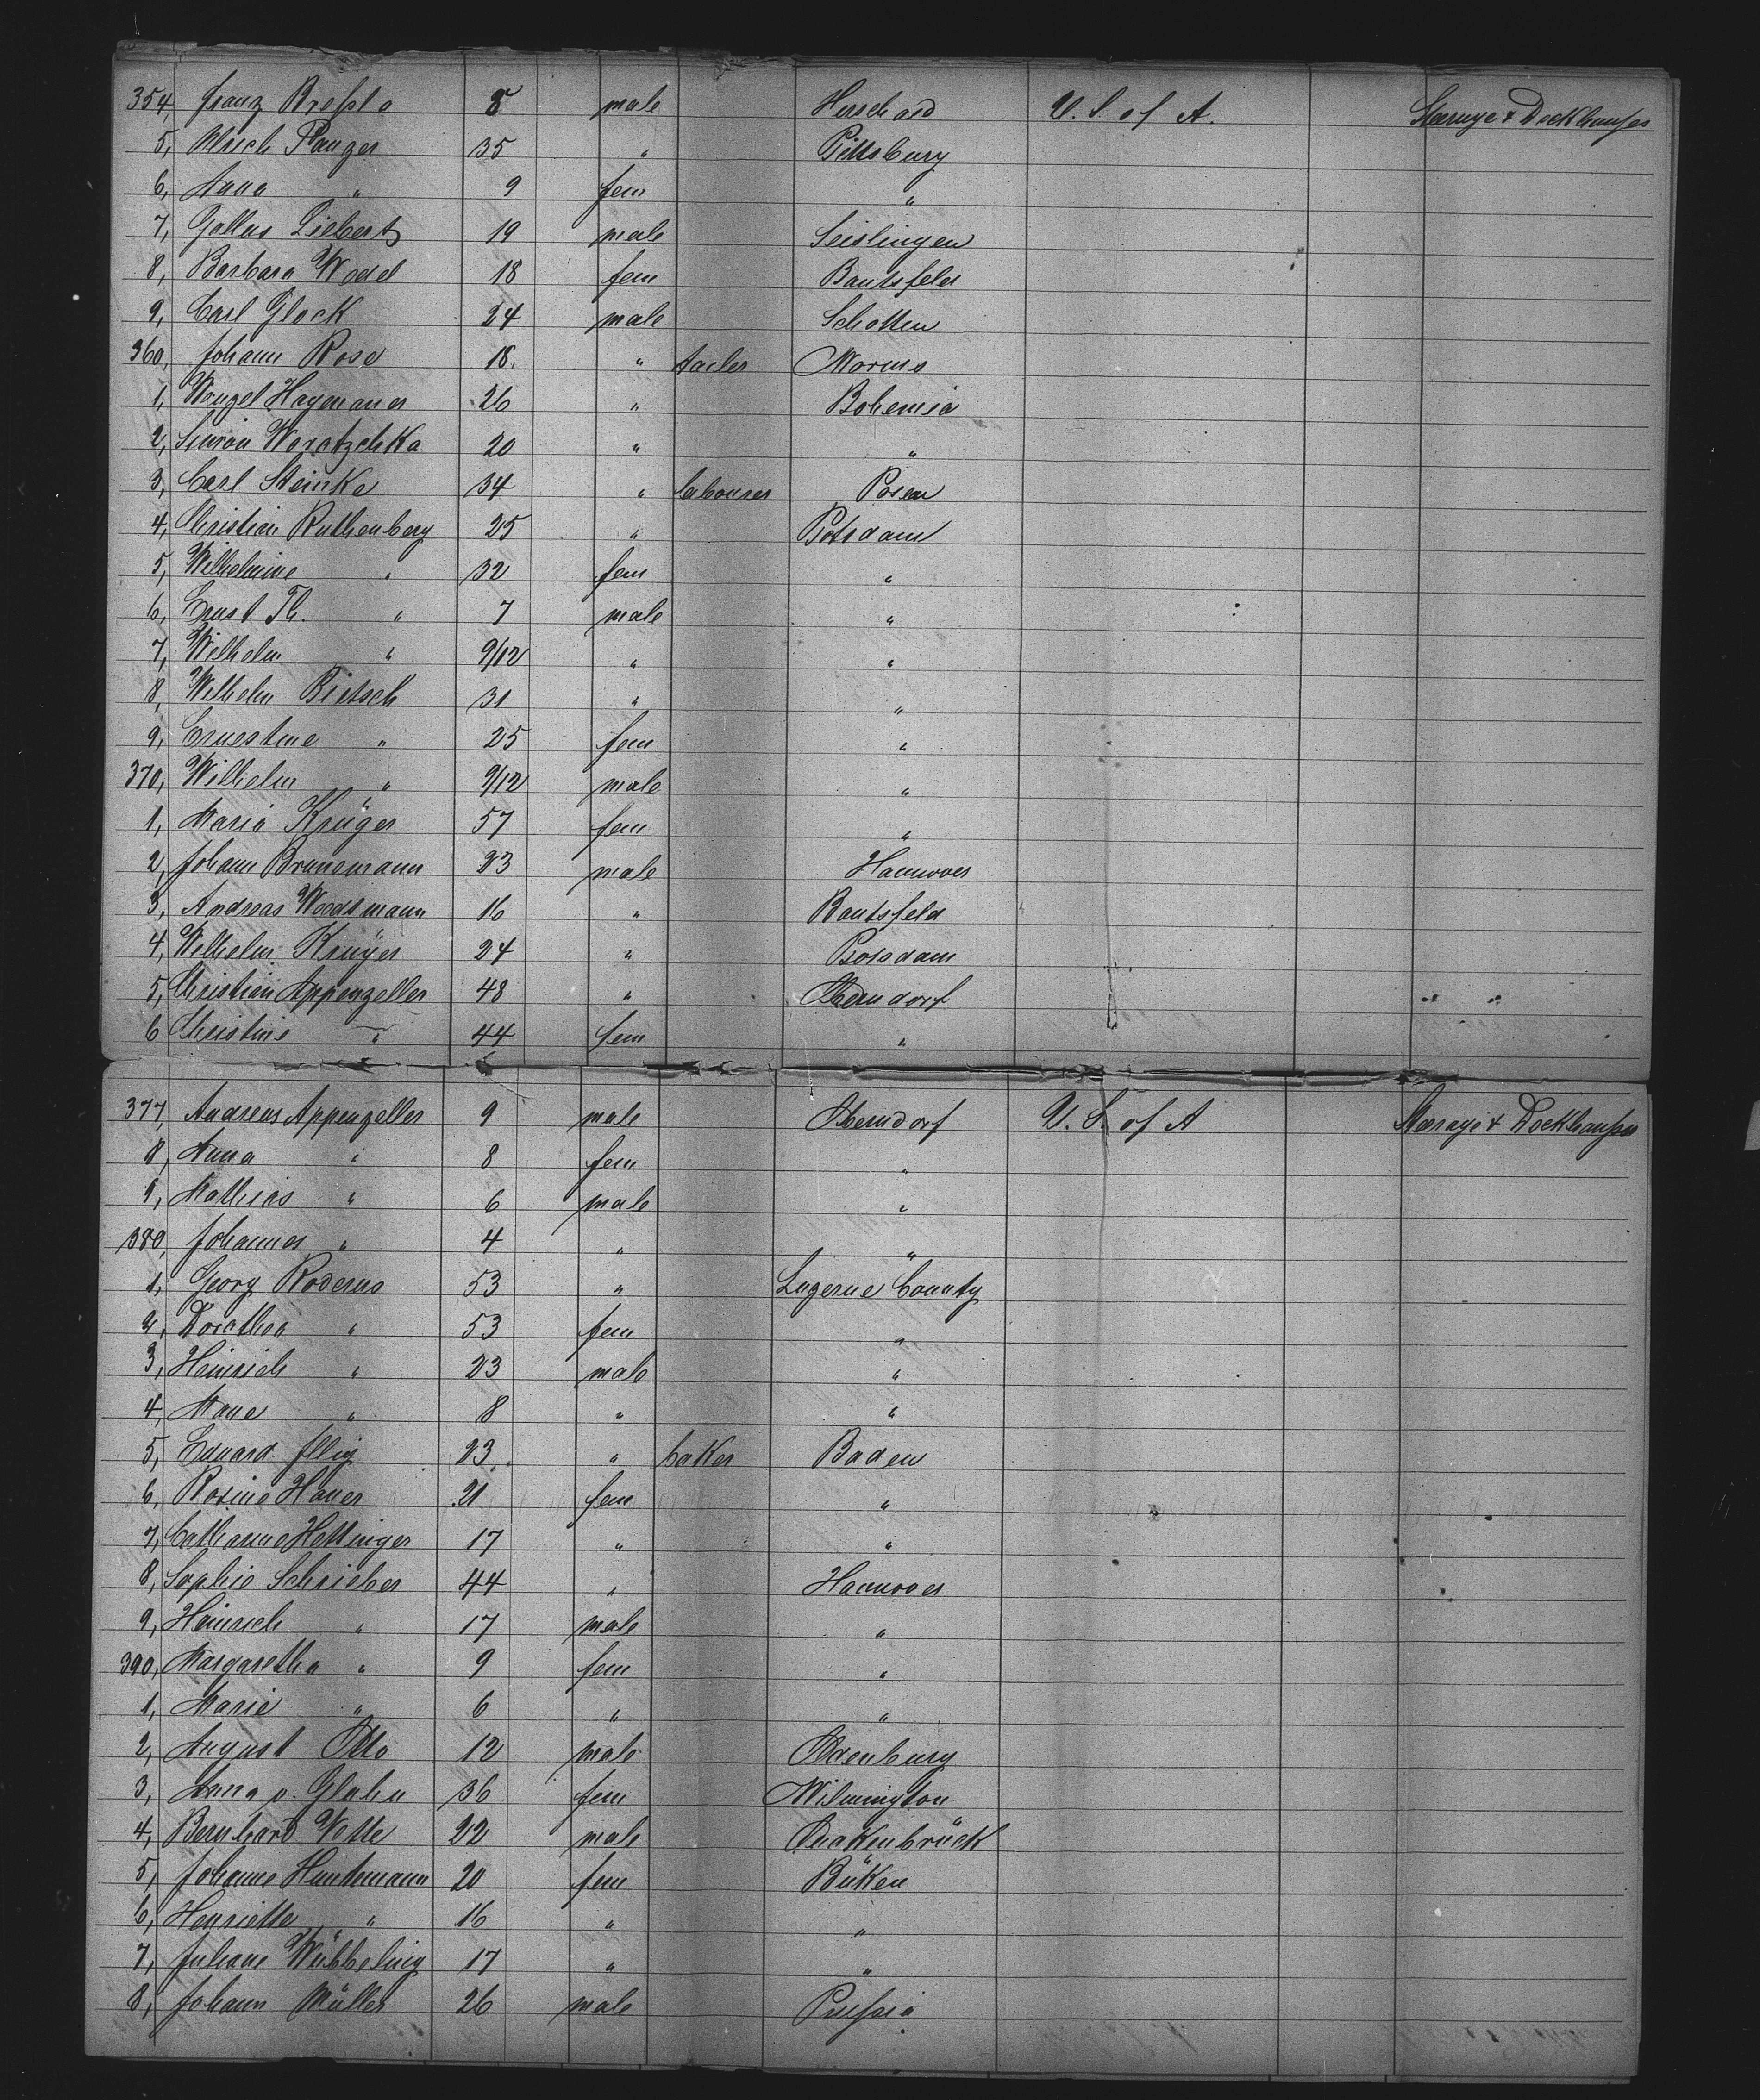 354, Franz Bressla 8 male U. S. of A. Steerage & Deckhouses
5, Ulrich Panzer 35 " Pittsburg
6, Anna " 9 fem "
7, Gallus Liebert 19 male Geislingen
8, Barbara Wodel 18 fem Bautsfeld
9, Carl Glock 24 male Schotten
360, Johann Rose 18 " Worms
1, Wenzel Hagenauer 26 " Bohemia
2, Simon Woratzchka 20 " "
3, Carl Steinke 34 " labourer Posen
4, Christian Ruthenberg 25 " Potsdam
5, Wilhelmine " 32 fem "
6, Ernst Th. " 7 male "
7, Wilhelm " 9/12 " "
8, Wilhelm Bietsch 31 " "
9, Ernestine " 25 fem "
370, Wilhelm " 9/12 male "
1, Maria Krüger 57 fem "
2, Johann Brunemann 23 male Hannover
3, Andreas Woodsmann 16 " Bautsfeld
4, Wilhelm Krüger 24 " Potsdam
5, Christian Appenzeller 48 " Oberndorf " "
6 Christine " 44 fem "
377, Andreas Appenzeller 9 male Oberndorf U. S. of A Steerage & Deckhouses
8, Anna " 8 fem "
9, Mathias " 6 male "
380, Johannes " 4 " "
1, Georg Roderus 53 " Luzerne County
2, Dorothea " 53 fem "
3, Heinrich " 23 male "
4, " 8 " "
5, Eduard Illig 23 " baker Baden
6, Rosine Hauer 21 fem "
7, Catharine Hettinger 17 " "
8, Sophie Schrieber 44 " Hannover
9, Heinrich " 17 male "
390, Margaretha " 9 fem "
1, Marie " 6 " "
2, August Otto 12 male Oldenburg
3, Anna v. Glahn 36 fem Wilmington
4, Bernhard Votte 22 male Quakenbrück
5, Johanne Huntemann 20 fem Büken
6, Henriette " 16 " "
7, Juliane Wübbeling 17 " "
8, Johann Müller 26 male Prussia